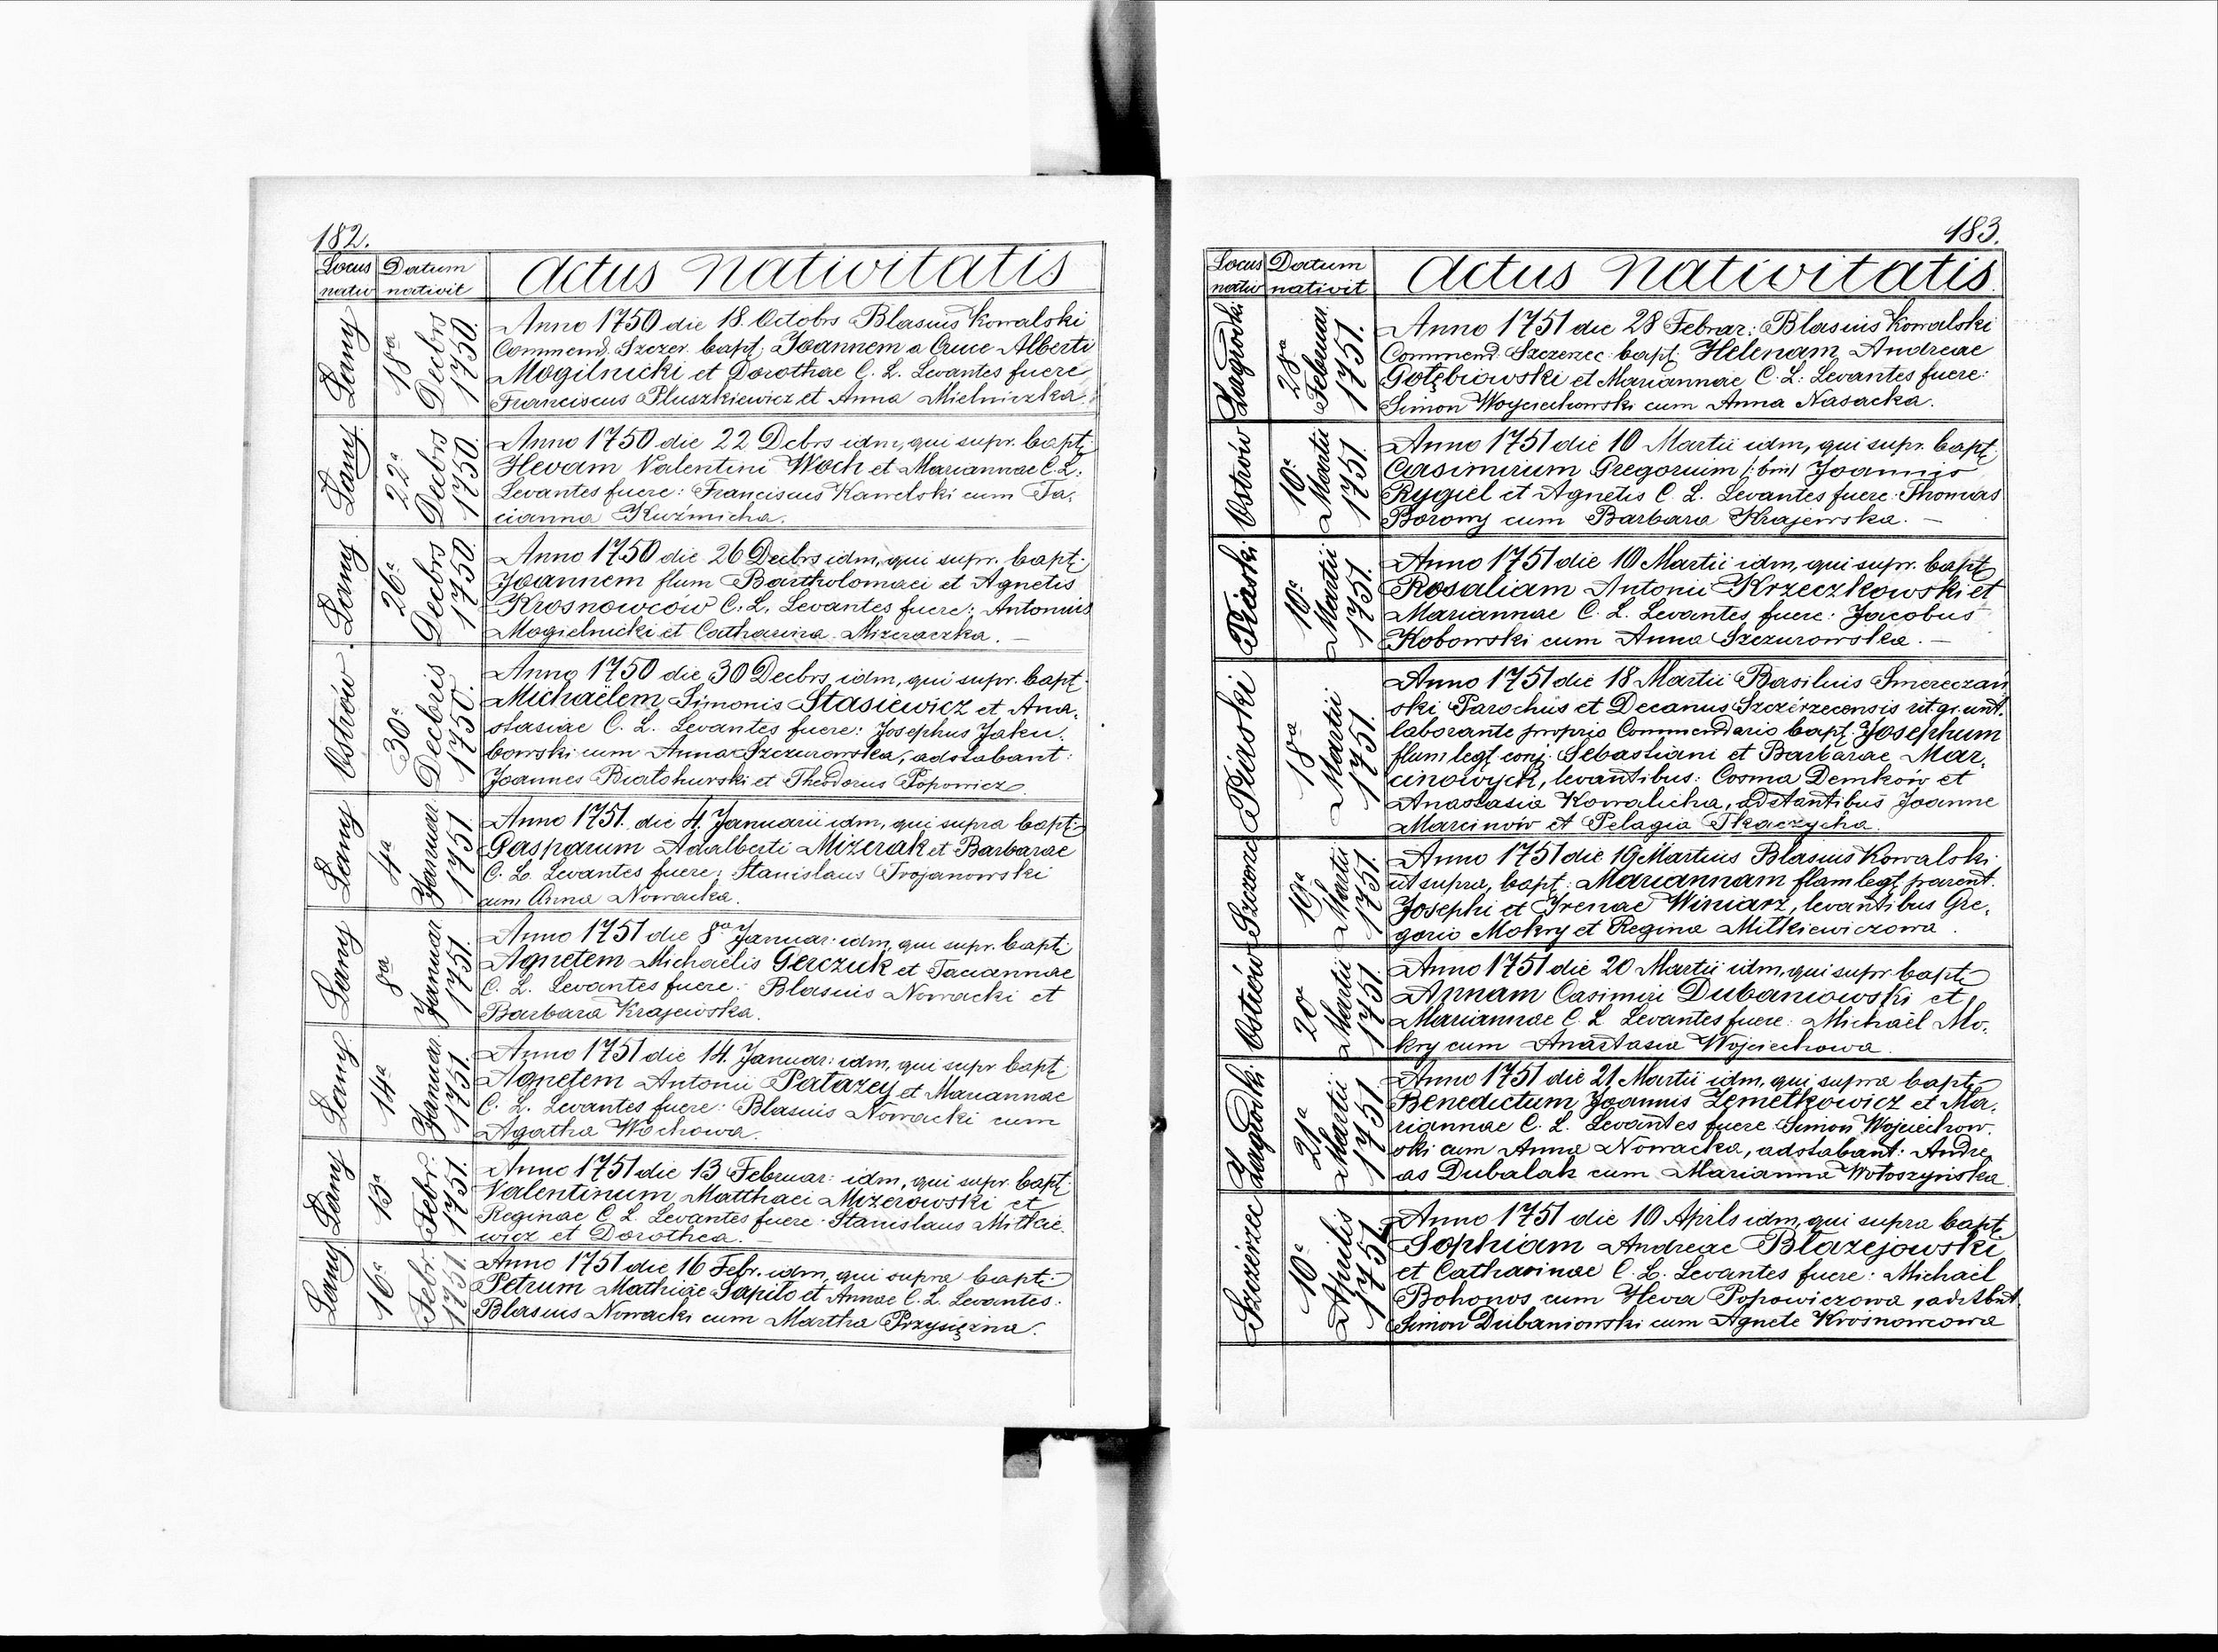 182.
Locus nativ
Datum nativit
Actus Nativitatis
Łany
18ª Decbrs 1750.
Anno 1750 die 18 Octobrs Blasius Kowalski
Commend. Szczer. bapt. Joannem a Cruce Alberti
Mogilnicki et Dorothae C. L. Levantes fuere
Franciscus Pluszkiewicz et Anna Mielniczka.
Łany
22ª Decbrs 1750.
Anno 1750 die 22 Dcbrs idm, qui supr. bapt:
Hevam Valentini Woch et Mariannae C. L.
Levantes fuere: Franciscus Kawelski cum Ta-
cianna Kuźmicha.
Łany
26ª Decbrs 1750.
Anno 1750 die 26 Decbrs idm, qui supr. bapt:
Joannem flum Bartholomaei et Agnetis
Krosnowców C. L. Levantes fuere: Antonius
Mogielnicki et Catharina Mizeraczka. —
Ostrów
30ª Decbris 1750.
Anno 1750 die 30 Decbrs idm, qui supr. bapt.
Michaëlem Simonis Stasiewicz et Ana-
stasiae C. L. Levantes fuere: Josephus Jaku-
bowski cum Anna Szczurowska, adstabant:
Joannes Białohurski et Theodorus Popowicz.
Łany
4ª Januar. 1751.
Anno 1751. die 4. Januarii idm, qui supra bapt:
Gasparum Adalberti Mizerak et Barbarae
C. L. Levantes fuere: Stanislaus Trojanowski
cum Anna Nowacka.
Łany
8ª Januar 1751.
Anno 1751 die 8ª Januar: idm, qui supr. bapt:
Agnetem Michaëlis Gerczuk et Taciannae
C. L. Levantes fuere: Blasius Nowacki et
Barbara Krajewska.
Łany
14ª Januar 1751.
Anno 1751 die 14. Januar: idm, qui supr bapt:
Agnetem Antonii Patazey et Mariannae
C. L. Levantes fuere: Blasius Nowacki cum
Agatha Wochowa.
Łany
13ª Febr. 1751.
Anno 1751 die 13 Februar: idm, qui supr. bapt:
Valentinum Matthaei Mizerowski et
Reginae C. L. Levantes fuere. Stanislaus Mitkie-
wicz et Dorothea. —
Łany
16ª Febr. 1751.
Anno 1751 die 16 Febr. idm, qui supra bapt:
Petrum Mathiae Sapito et Annae C. L. Levantes.
Blasius Nowacki cum Martha Przysiężna.
183.
Locus nativ
Datum nativit
Actus Nativitatis.
Zagrodki
28ª Februar. 1751.
Anno 1751 die 28 Februar: Blasius Kowalski
Commend. Szczerzec. bapt: Helenam Andreae
Gołębiowski et Mariannae C. L: Levantes fuere:
Simon Woyciechowski cum Anna Nasacka.
Ostrów
10ª Martii 1751.
Anno 1751 die 10 Martii idm, qui supr. bapt:
Casimirum Gregorium /:bin:/ Joannis
Rygiel et Agnetis C. L. Levantes fuere: Thomas
Borowy cum Barbara Krajewska. —
Piaski
10ª Martii 1751.
Anno 1751 die 10 Martii idm, qui supr. bapt
Rosaliam Antonii Krzeczkowski et
Mariannae C. L. Levantes fuere: Jacobus
Kobowski cum Anna Szczurowska. —
Piaski
18ª Martii 1751.
Anno 1751 die 18 Martii Basilius Smereczań
ski Parochus et Decanus Szczerzecensis rit. gr. unt.
laborante proprio Commendario bapt. Josephum
flum legt conj: Sebastiani et Barbarae Mar-
cinowych, levantibus: Cosma Demków et
Anastasia Kowalicha, adstantibus Joanne
Marcinów et Pelagia Tkaczycha.
Szczerzec
19ª Martii 1751.
Anno 1751 die 19 Martius Blasius Kowalski
ut supra, bapt: Mariannam flam legt parent.
Josephi et Irenae Winiarz, levantibus Gre-
gorio Mokry et Regina Mitkiewiczowa.
Ostrów
20ª Martii 1751.
Anno 1751 die 20 Martii idm, qui supr. bapt:
Annam Casimiri Dubaniowski et
Mariannae C. L. Levantes fuere: Michaël Mo-
kry cum Anastasia Wojciechowa.
Zagrodki
21ª Martii 1751
Anno 1751 die 21 Martii idm, qui supra bapt:
Benedictum Joannis Zemełkowicz et Ma-
riannae C. L. Levantes fuere Simon Wojciechow-
ski cum Anna Nowacka, adstabant: Andre-
as Dubalak cum Marianna Wołoszyńska
Szczérzec
10ª Aprilis 1751.
Anno 1751 die 10 Aprils idm, qui supra bapt:
Sophiam Andreae Blażejowski
et Catharinae C. L. Levantes fuere: Michaël
Bohonos cum Heva Popowiczowa, adstbnt.
Simon Dubaniowski cum Agnete Krosnowcowa